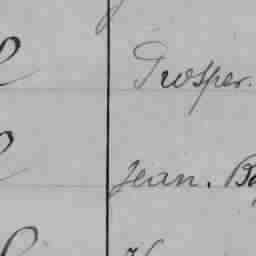 Prosper.
Jean. Ba